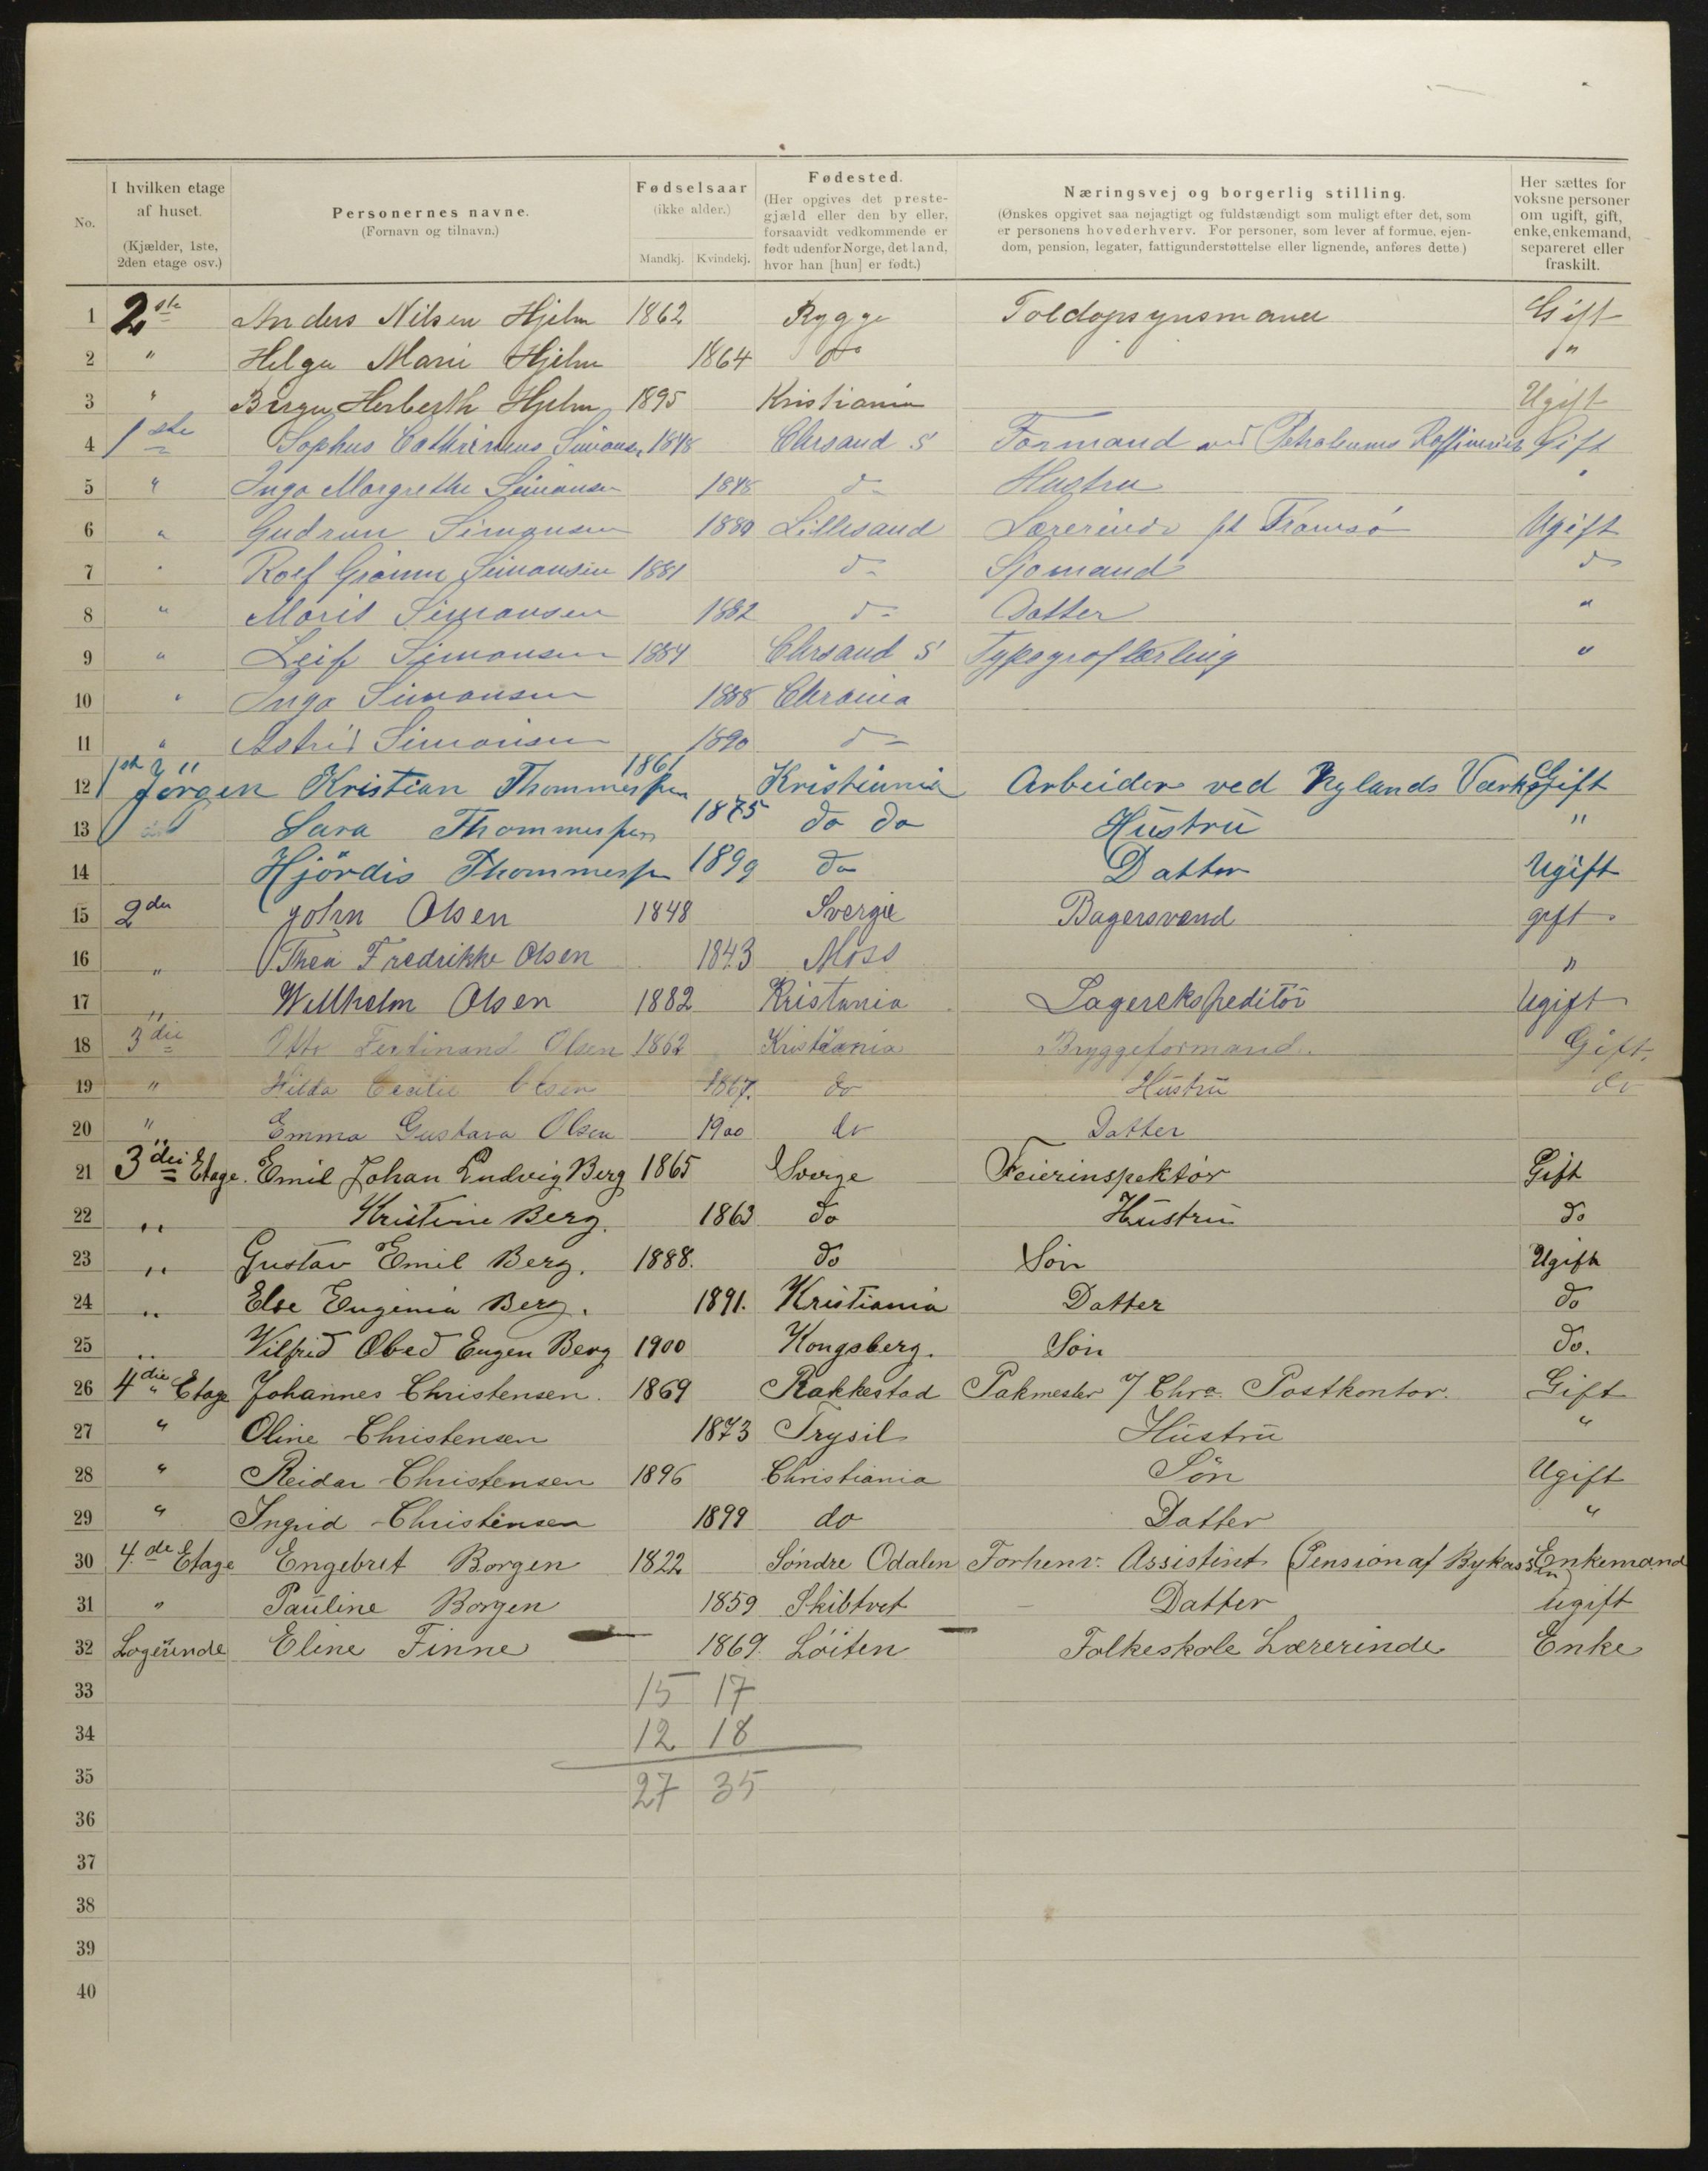 No.
I hvilken etage af huset. (Kjælder, 1ste, 2den etage osv.)
Personernes navne. (Fornavn og tilnavn.)
Fødselsaar (ikke alder.) Mandkj. Kvindekj.
Fødested. (Her opgives det prestegjæld eller den by eller, forsaavidt vedkommende er født udenfor Norge, det land, hvor han [hun] er født.)
Næringsvej og borgerlig stilling. (Ønskes opgivet saa nøjagtigt og fuldstændigt som muligt efter det, som er personens hovederhverv. For personer, som lever af formue, ejendom, pension, legater, fattigunderstøttelse eller lignende, anføres dette.)
Her sættes for voksne personer om ugift, gift, enke, enkemand, separeret eller fraskilt.
1 2ste Anders Nilsen Hjelm 1862 Rygge Toldopsynsmand Gift
2 " Helga Marie Hjelm 1864 do "
3 " Birger Herberth Hjelm 1895 Kristiania Ugift
4 1ste Sophus Simonsen 1848 Chrsand S Formand ved Petroleums Gift
5 " Inga Margrethe Simonsen 1848 do Hustru "
6 " Gudrun Simonsen 1880 Lillesand Lærerinde pt Tromsö Ugift
7 " Rolf Simonsen 1881 do Sjömand do
8 " Marit Simonsen 1882 do Datter "
9 " Leif Simonsen 1884 Chrsand S Typograflærling "
10 " Inga Simonsen 1888 Chrania
11 " Astrid Simonsen 1890 do
12 1ste Jörgen Kristian Thommessen 1861 Kristiania Arbeider ved Nylands Værksted Gift
13 Sara Thommessen 1875 do do Hustru "
14 Hjördis Thommessen 1899 do Datter Ugift
15 2den John Olsen 1848 Sverige Bagersvend gift
16 " Thea Fredrikke Olsen 1843 Moss "
17 " Willhelm Olsen 1882 Kristania Lagerekspeditör Ugift
18 3die Otto Ferdinand Olsen 1862 Kristiania Bryggeformand. Gift.
19 " Hilda Cecilie Olsen 1867. do Hustru do
20 " Emma Gustava Olsen 1900 do Datter
21 3die Etage. Emil Johan Ludvig Berg 1865 Sverge Feierinspektör Gift
22 " Kristine Berg. 1863 do Hustru do
23 " Gustav Emil Berg. 1888. do Sön Ugift
24 " Else Eugenia Berg. 1891. Kristiania Datter do
25 " Vilfrid Obed Eugen Berg 1900 Kongsberg. Sön do.
26 4die Etage Johannes Christensen. 1869 Rakkestad Pakmester v/ Chra. Postkontor. Gift
27 " Oline Christensen 1873 Trysil Hustru "
28 " Reidar Christensen 1896 Christiania Sön Ugift
29 " Ingrid Christensen 1899 do Datter "
30 4.de Etage Engebret Borgen 1822 Söndre Odalen Forhenv. Assistint (Pension af Bykassen) Enkemand
31 " Pauline Borgen 1859 Skibtvet Datter Ugift
32 Logerende Eline Finne 1869. Löiten Folkeskole Lærerinde Enke
33 15 17
34 12 18
35 27 35
36
37
38
39
40